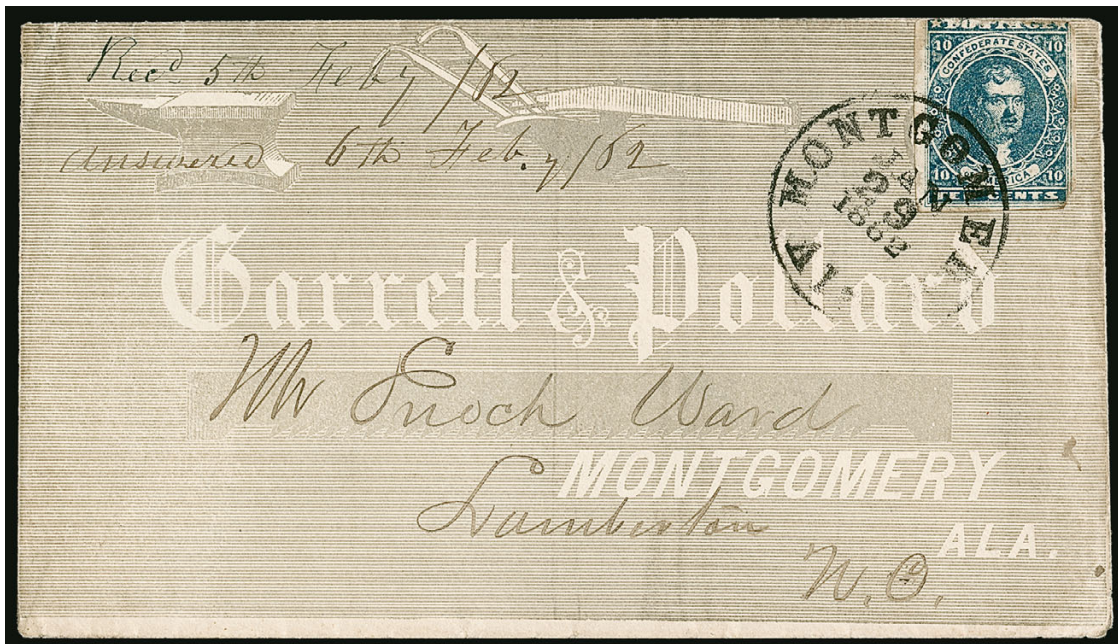 Recd 5th Feby /62
answered 6th Feb.y /62
10 10
CONFEDERATE STATES
10 10
TEN CENTS
MONTGOMER
1862
Garrett & Pollard
Mr Enoch Ward
MONTGOMERY
Lumberton
ALA.
N.C.